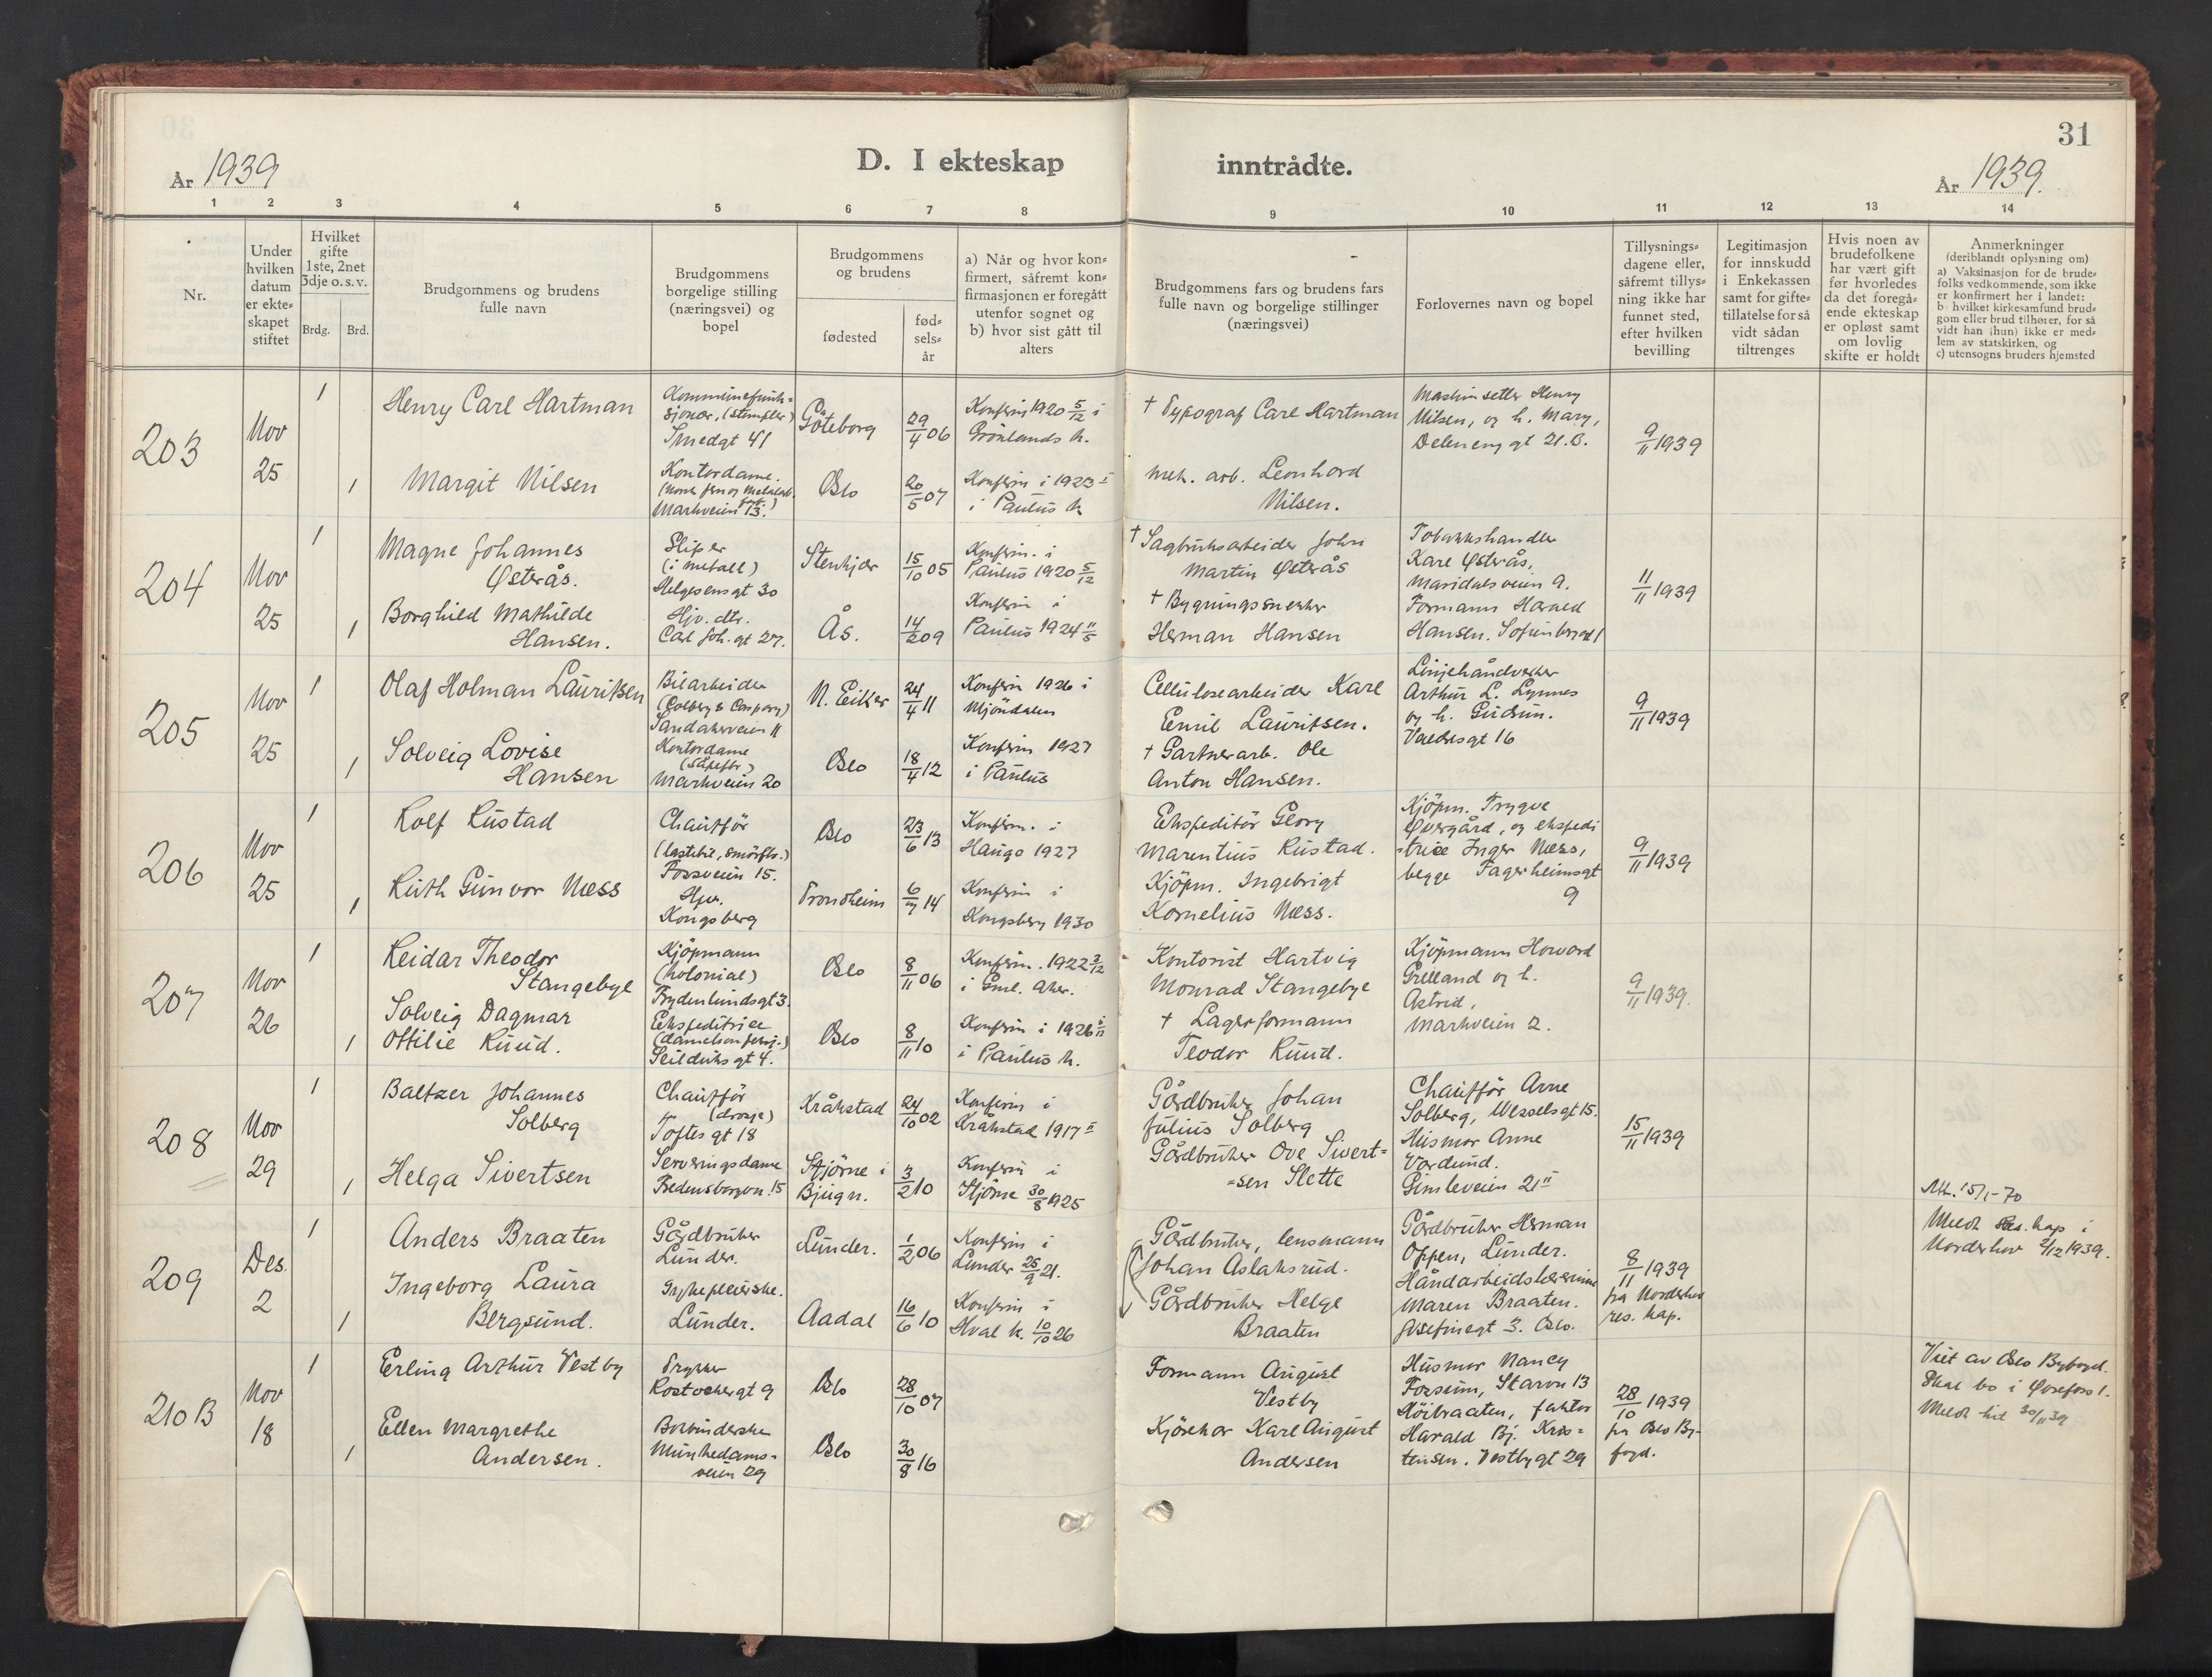 31
År 1939
D. I ekteskap inntrådte.
År 1939.
1 2 3 4 5 6 7 8 9 10 11 12 13 14
Nr.
Under hvilken datum er ekte- skapet stiftet
Hvilket gifte 1ste, 2net 3dje o. s. v.
Brdg. Brd.
Brudgommens og brudens fulle navn
Brudgommens borgelige stilling (næringsvei) og bopel
Brudgommens og brudens
fødested
fød- sels- år
a) Når og hvor kon- firmert, såfremt kon- firmasjonen er foregått utenfor sognet og b) hvor sist gått til alters
Brudgommens fars og brudens fars fulle navn og borgelige stillinger (næringsvei)
Forlovernes navn og bopel
Tillysnings- dagene eller, såfremt tillys- ning ikke har funnet sted, efter hvilken bevilling
Legitimasjon for innskudd i Enkekassen samt for gifte- tillatelse for så vidt sådan tiltrenges
Hvis noen av brudefolkene har vært gift før hvorledes da det foregå- ende ekteskap er opløst samt om lovlig skifte er holdt
Anmerkninger (deriblandt oplysning om) a) Vaksinasjon for de brude- folks vedkommende, som ikke er konfirmert her i landet; b) hvilket kirkesamfund brud- gom eller brud tilhører, for så vidt han (hun) ikke er med- lem av statskirken, og c) utensogns bruders hjemsted
203
Nov 25
1
Henry Carl Hartman
Kommunefunk- sjonær, (stempler)
Smedgt 41
Göteborg
29/4 06
Konfirm 1920 5/12 i
Grönlands k.
† Typograf Carl Hartman
Maskinsetter Henry
Nilsen, og h. Mary,
Deleneng gt 21.B.
9/11 1939
1
Margit Nilsen
Kontordame.
Markveien 13.
Oslo
20/5 07
Konfirm i 1923
i Paulus k
mek. arb. Leonhard
Nilsen.
204
Nov 25
1
Magne Johannes
Østerås.
Sliper
(i metall)
Helgesensgt 30
Stenkjær
15/10 05
Konfirm. i
Paulus 1920 5/12
† Sagbruksarbeider John
Martin Østerås
Tobakkshandler
Kare Østerås,
Maridalsveien 9.
11/11 1939
1
Borghild Mathilde
Hansen.
Hjv. dtr.
Carl Joh. gt 27.
Ås.
14/2 09
Konfirm i
Paulus 1924 11/5
† Bygningssnekker
Herman Hansen
Formann Harald
Hansen.
205
Nov 25
1
Olaf Holman Lauritsen
Bilarbeider
(Colberg & Caspary)
Sandakerveien 11
N. Eiker
24/4 11
Konfirm 1926 i
Mjöndalen
Cellulosearbeider Karl
Emil Lauritsen.
Linjehåndverker
Arthur L. Lynnes
og h. Gudrun.
Valdresgt 16
9/11 1939
1
Solveig Lovise
Hansen
Kontordame
(Såpefbr.)
Markveien 20
Oslo
18/4 12
Konfirm 1927
i Paulus
† Gartnerarb. Ole
Anton Hansen.
206
Nov 25
1
Rolf Rustad
Chaufför
(lastebil, smörfbr.)
Fossveien 15.
Oslo
23/6 13
Konfirm. i
Hauge 1927
Ekspeditör Georg
Marentius Rustad.
Kjöpm. Trygve
Övergård, og ekspedi
trice Inger Næss,
begge Fagerheimsgt
9
9/11 1939
1
Ruth Gunvor Næss
Hjv.
Kongsberg
Trondheim
6/7 14
Konfirm i
Kongsberg 1930
Kjöpm. Ingebrigt
Kornelius Næss.
207
Nov 26
1
Reidar Theodor
Stangebye
Kjöpmann
(kolonial)
Frydenlundsgt 3.
Oslo
8/11 06
Konfirm. 1922 3/12
i Gml. Aker.
Kontorist Hartvig
Monrad Stangebye
Kjöpmann Howard
Grelland og h.
Astrid,
Markveien 2.
9/11 1939.
1
Solveig Dagmar
Ottilie Ruud.
Ekspeditrice
Seilduksgt 4.
Oslo
8/11 10
Konfirm i 1926
i Paulus k.
† Lagerformann
Teodor Ruud.
208
Nov 29
1
Baltzer Johannes
Solberg
Chaufför
(drosje)
Toftesgt 18
Kråkstad
24/10 02
Konfirm i
Kråkstad 1917
Gårdbruker Johan
Julius Solberg
Chauffør Arne
Solberg, Wesselsgt 15.
15/11 1939
1
Helga Sivertsen
Serveringsdame
Fredensborgvn. 15
Stjörne i
Bjugn.
3/2 10
Konfirm i
Stjörne 30/8 1925
Gårdbruker Ove Sivert-
-sen Slette
Husmor Anne
Vordund.
Gimleveien 21
Att. 15/1-70
209
Des. 2
1
Anders Braaten
Gårdbruker
Lunder.
Lunder.
1/2 06
Konfirm i
Lunder 25/9 21.
Gårdbruker, lensmann
Johan Aslaksrud.
Gårdbruker Herman
Oppen, Lunder.
8/11 1939
fra Norderhov
res. kap.
Meldt res. kap i
Norderhov 2/12 1939.
1
Ingeborg Laura
Bergsund.
Sykepleierske.
Lunder.
Aadal
16/6 10
Konfirm i
Hval k. 10/10 26
Gårdbruker Helge
Braaten
Håndarbeidslærerinne
Maren Braaten.
Josefinegt 3. Oslo.
210 B
Nov 18
1
Erling Arthur Vestby
Trykker
Rostockergt 9
Oslo
28/10 07
Formann August
Vestby
Husmor Nancy
Fossum, Starvn 13
Höibraaten,
28/10 1939
fra Oslo By-
fogd.
Viet av Oslo Byfogd.
Skal bo i Øvrefoss 1.
Meldt hit 30/11 39
1
Ellen Margrethe
Andersen.
Bokbinderske
Munkedams-
veien 29
Oslo
30/8 16
Kjörekar Karl August
Andersen
faktor
Harald Bj. Kris-
tensen. Vestbygt 29